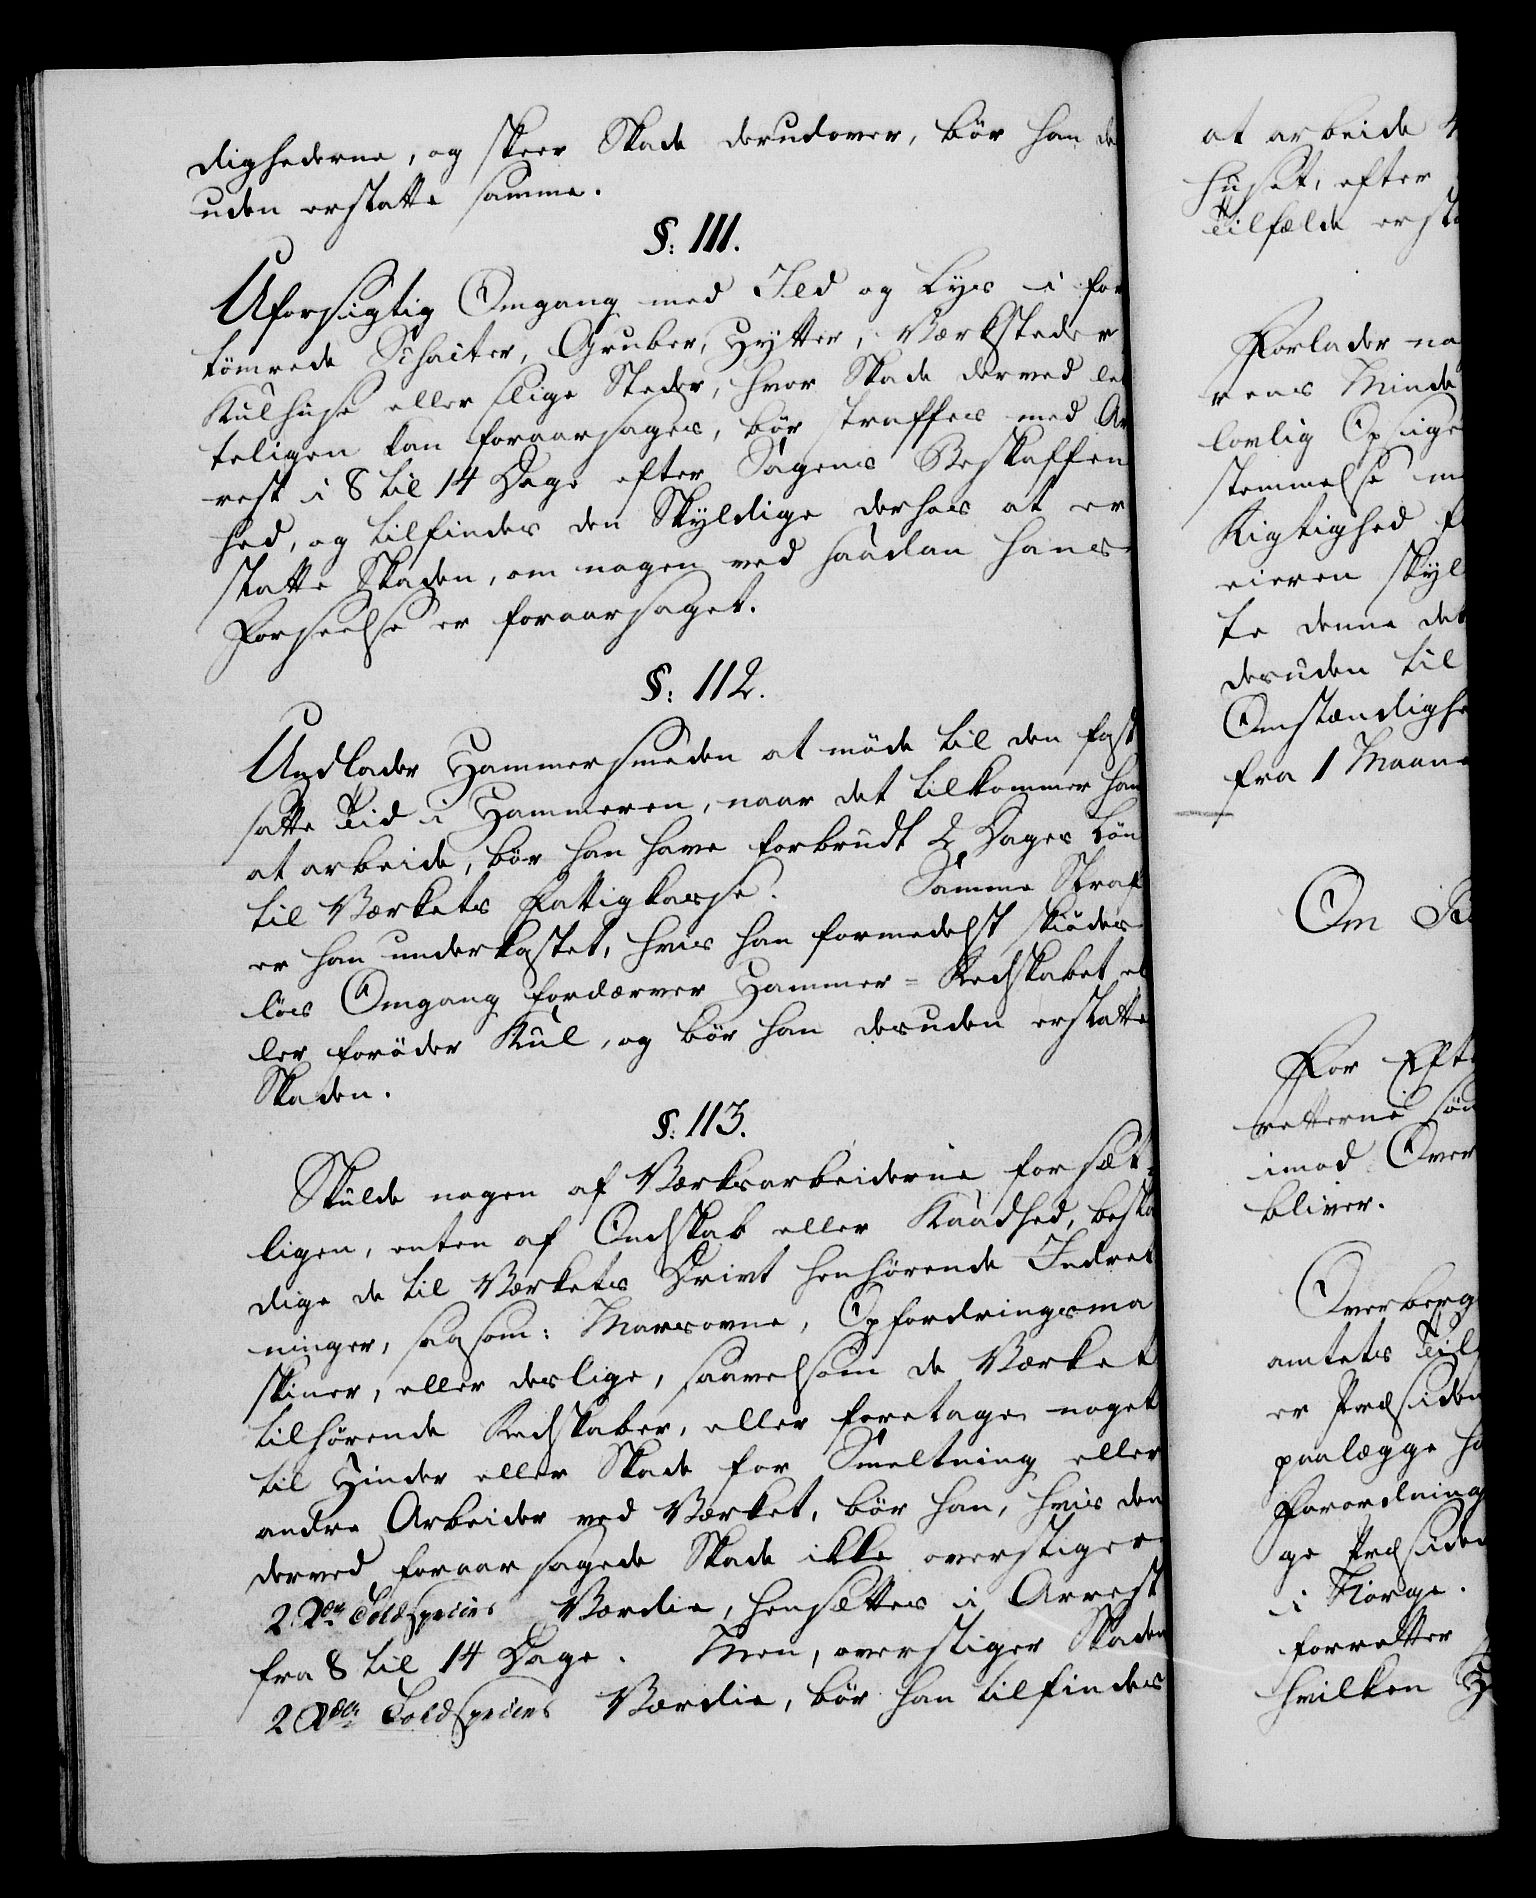 dighederne, og skeer Skade derudover, bör han de
uden erstatte samme.
§: 111.
Uforsigtig Omgang med Ild og Lys i for
tömrede Schakter, Gruber, Hytter, Værksteder
Kulhuse eller slige Steder, hvor Skade derved let
teligen kan foraarsages, bör straffes med Ar
rest i 8 til 14 Dage efter Sagens Beskaffen
hed, og tilfindes den Skyldige derhos at er
statte Skaden, om nogen ved saadan hans
Forseelse er foraarsaget.
§: 112.
Undlader Hammersmeden at möde til den fast
satte Tid i Hammeren, naar det tilkommer ham
at arbeide, bör han have forbrudt 2 Dages Lön
til Værkets Fattigkasse. Samme Straf
er han underkastet, hvis han formedelst skiödes
lös Omgang fordærver Hammer-Redskabet el
ler foröder Kul, og bör han desuden erstatte
Skaden.
§: 113.
Skulde nogen af Værksarbeiderne forsæt-
ligen, enten af Ondskab eller Kaadhed, beska
dige de til Værkets Drivt henhörende Indret
ninger, saasom: Marsovne, Opfordringsma
skiner, eller deslige, saavelsom de Værket
tilhörende Redskaber, eller foretage noget
til Hinder eller Skade for Smeltning eller
andre Arbeider ved Værket, bör han, hvis den
derved foraarsagede Skade ikke overstiger
2 Rdlr Sölvspecies Værdie, hensættes i Arrest
fra 8 til 14 Dage. Men, overstiger Skaden
2 Rdlr Sölvspecies Værdie, bör han tilfindes
at arbeide
huset, efter
Tilfælde ersta
Forlader no
rens Minde
lovlig Opsige
stemmelse m
Rigtighed f
eieren skyl
te denne det
desuden til
Omstændighe
fra 1 Maan
Om
For Eft
retterne sön
imod Over
bliver.
Overberg
amtets Til
er Præsiden
paalægge h
Forordning
ge Præsiden
i Norge.
forretter
hvilken